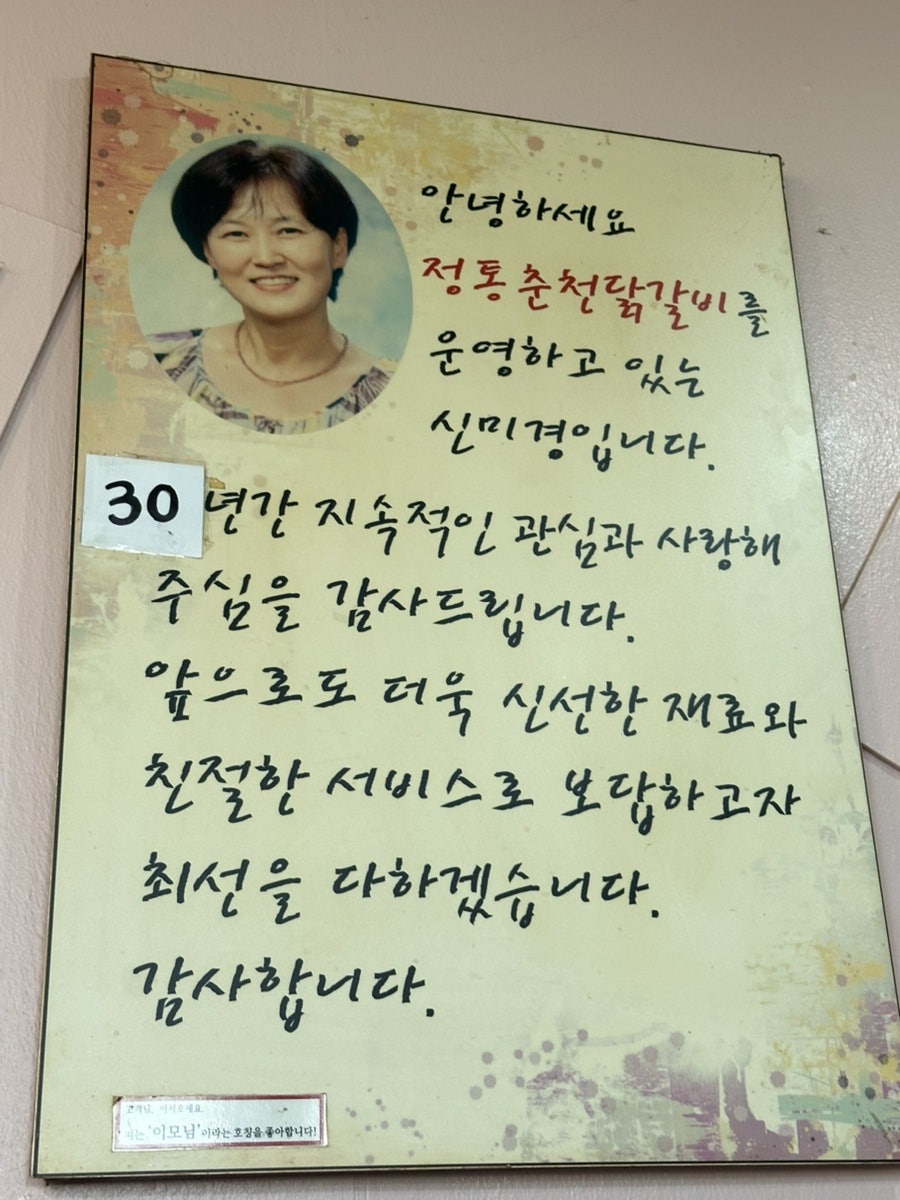 안녕하세요
정통춘천닭갈비를
운영하고 있는
신미경입니다.
30년간 지속적인 관심과 사랑해
주심을 감사드립니다.
앞으로도 더욱 신선한 재료와
친절한 서비스로 보답하고자
최선을 다하겠습니다.
감사합니다.
고객님, 어서오세요.
저는 "이모님"이라는 호칭을 좋아합니다!